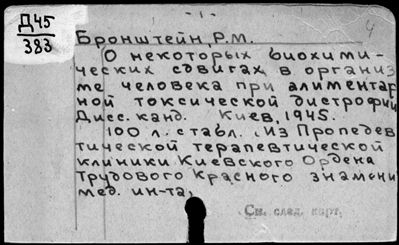 Д45
383
- 1 -
4
Бронштейн, Р.М.
О некоторых биохими-
ческих сдвигах в организ
ме человека при алиментар
ной токсической дистрофии
Дисс. канд. Киев, 1945.
100 л. с табл. (Из Пропедев
тической терапевтической
клиники Киевского Ордена
Трудового Красного знамени
мед. ин-та)
См. след. карт.